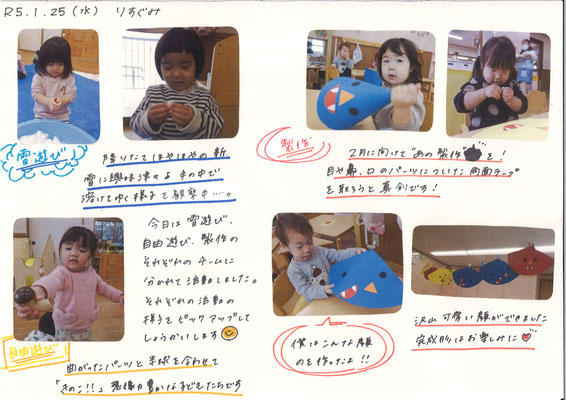 R5.1.25(水) りすぐみ
雪遊び
降りたてほやほやの新
雪に興味津々♪ 手の中で
溶けてゆく様子を観察中……。
製作
2月に向けて"あの製作"を!
目や鼻、口のパーツについた両面テープ
を取ろうと真剣です!
今日は雪遊び、
自由遊び、製作の
それぞれのチームに
分かれて活動しました。
それぞれの活動の
様子をピックアップして
しょうかいします
自由遊び
曲がったパーツと半球を合わせて
「きのこ!!」想像力豊かな子どもたちです
僕はこんな顔
のを作ったよ!!
沢山可愛い顔ができました
完成形はお楽しみに